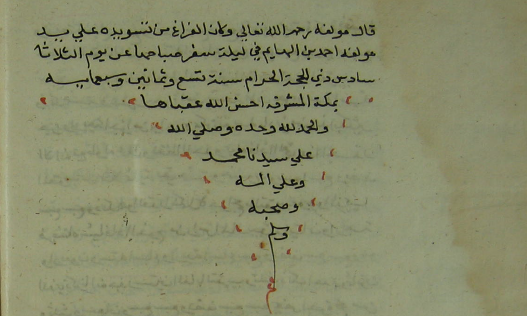 قال مولفه رحمه الله تعالي وكان الفراغ من تسويده علي يد
مولفه احمد بن الهايم في ليلة سفر صباحها عن يوم الثلاثا
سادس ذي الحجة الحرام سنة تسع وثمانين وسبعمايه
بمكة المشرفه احسن الله عقباها
والحمد لله وحده وصلي الله
علي سيدنا محمد
وعلي اله
وصحبه
وسلم